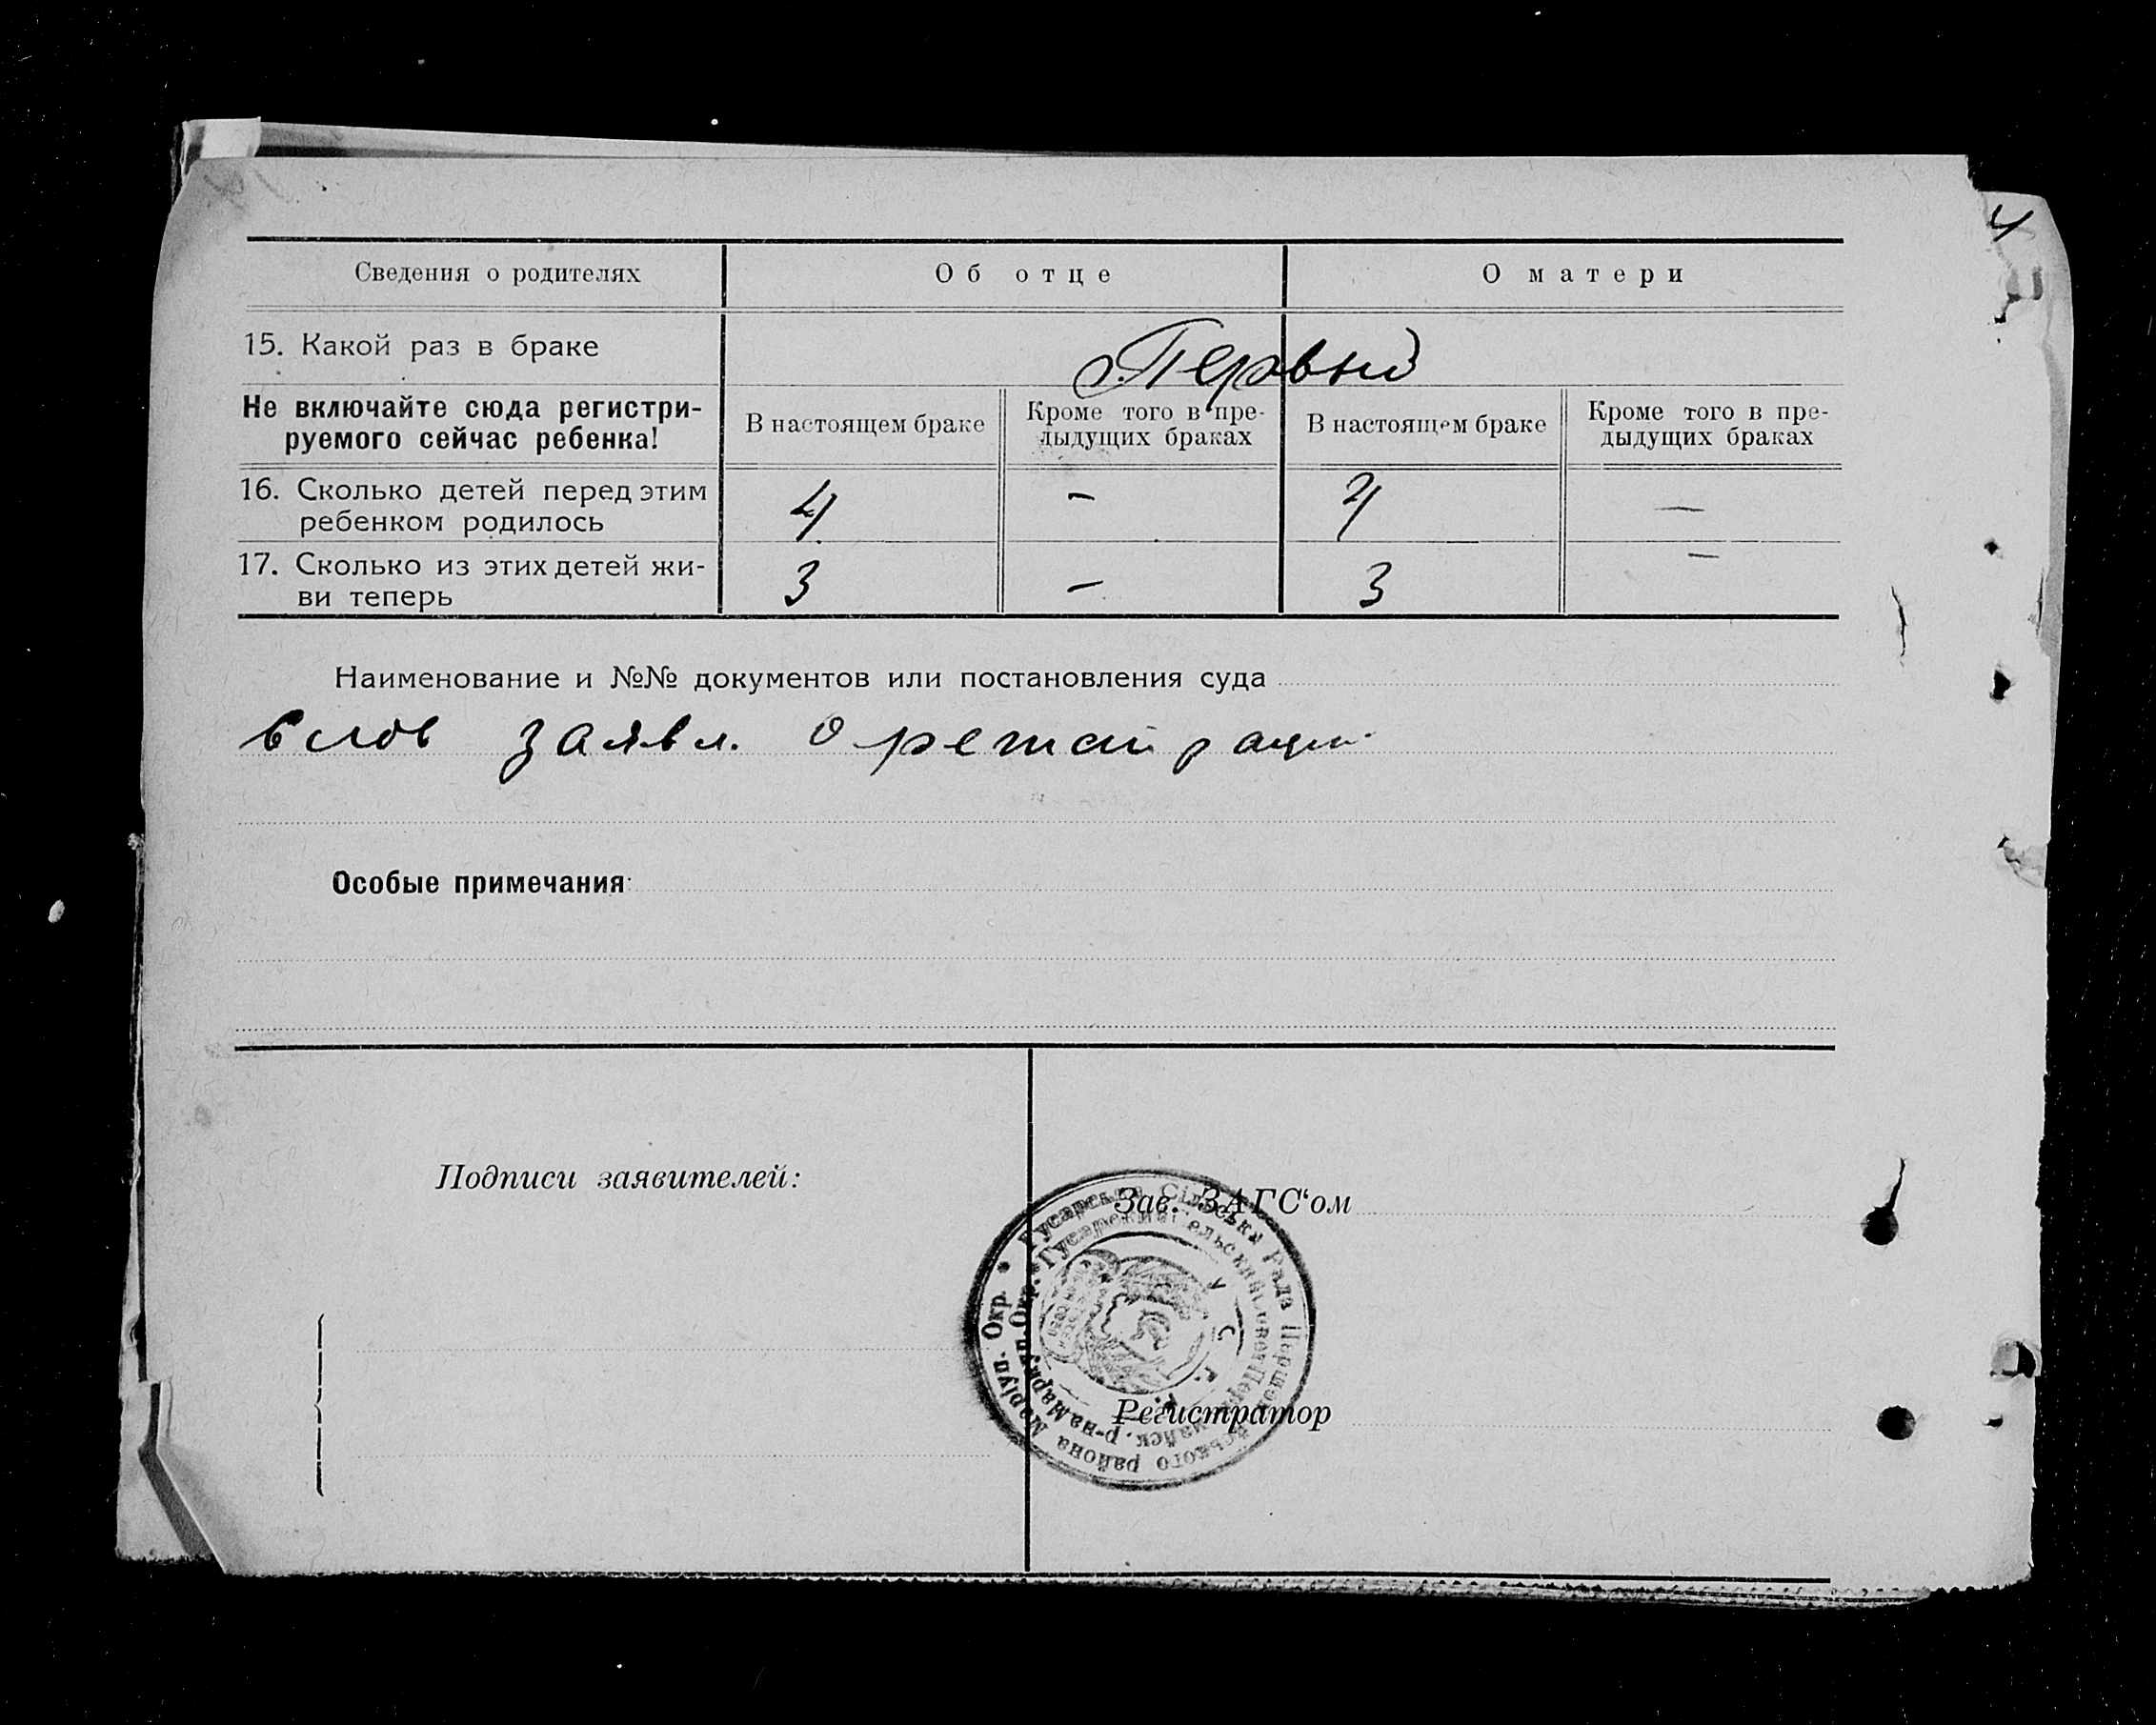 4
Сведения о родителях Об отце О матери
15. Какой раз в браке Первый
Не включайте сюда регистри-
руемого сейчас ребенка!
В настоящем браке
Кроме того в пре-
дыдущих браках
В настоящем браке
Кроме того в пре-
дыдущих браках
16. Сколько детей перед этим
ребенком родилось 4 – 4 –
17. Сколько из этих детей жи-
ви теперь 3 – 3 –
Наименование и №№ документов или постановления суда
слов заявл. о
Особые примечания:
Подписи заявителей:
Зав. ЗАГС‘ом
Регистратор
Гусарська Сільська Рада Першотравського района Маріуп. Окр.
Гусарский Сельский Совет р-на Мариуп. Окр.
У. С. С. Р.